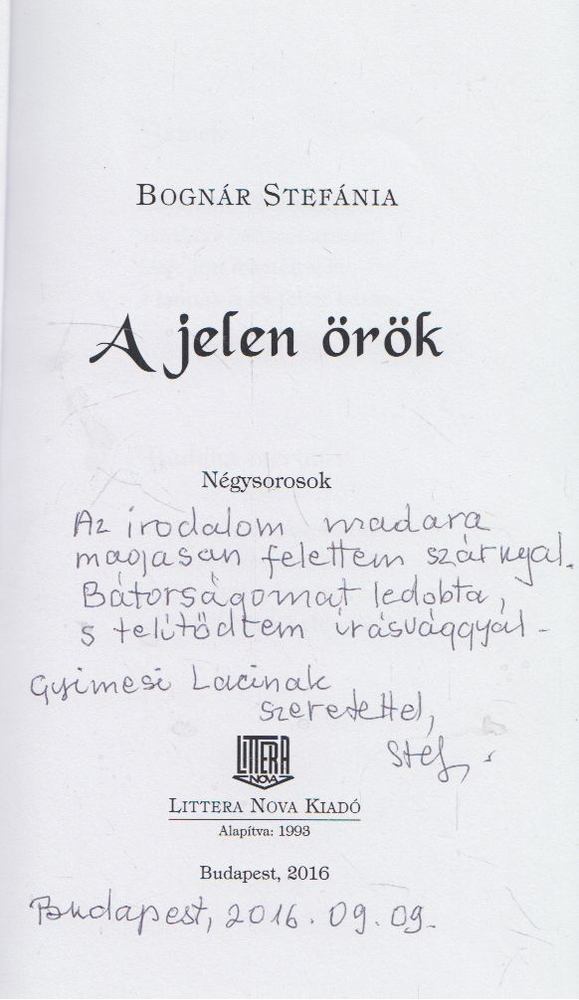 BOGNÁR STEFÁNIA
A jelen örök
Négysorosok
Az irodalom madara
magasan felettem szárnyal.
Bátorságomat ledobta,
s telítődtem írásvággyal -
Gyimesi Lacinak
szeretettel,
Stef.
LITTERA
NOVA
LITTERA NOVA KIADÓ
Alapítva: 1993
Budapest, 2016
Budapest, 2016. 09. 09.